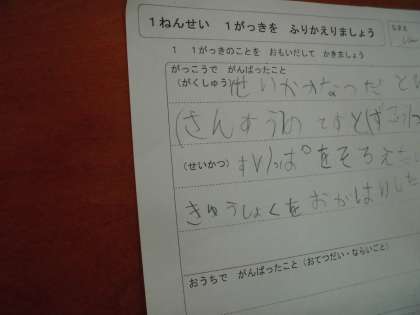 1ねんせい 1がっきを ふりかえりましょう
なまえ
1 1がっきのことを おもいだして かきましょう
がっこうで がんばったこと
(がくしゅう) せいかかなっだ
(さんすう)の てすと
(せいかつ) すりっぱ゜をそろえた
きゅうしょくを おかはりした
おうちで がんばったこと(おてつだい・ならいごと)